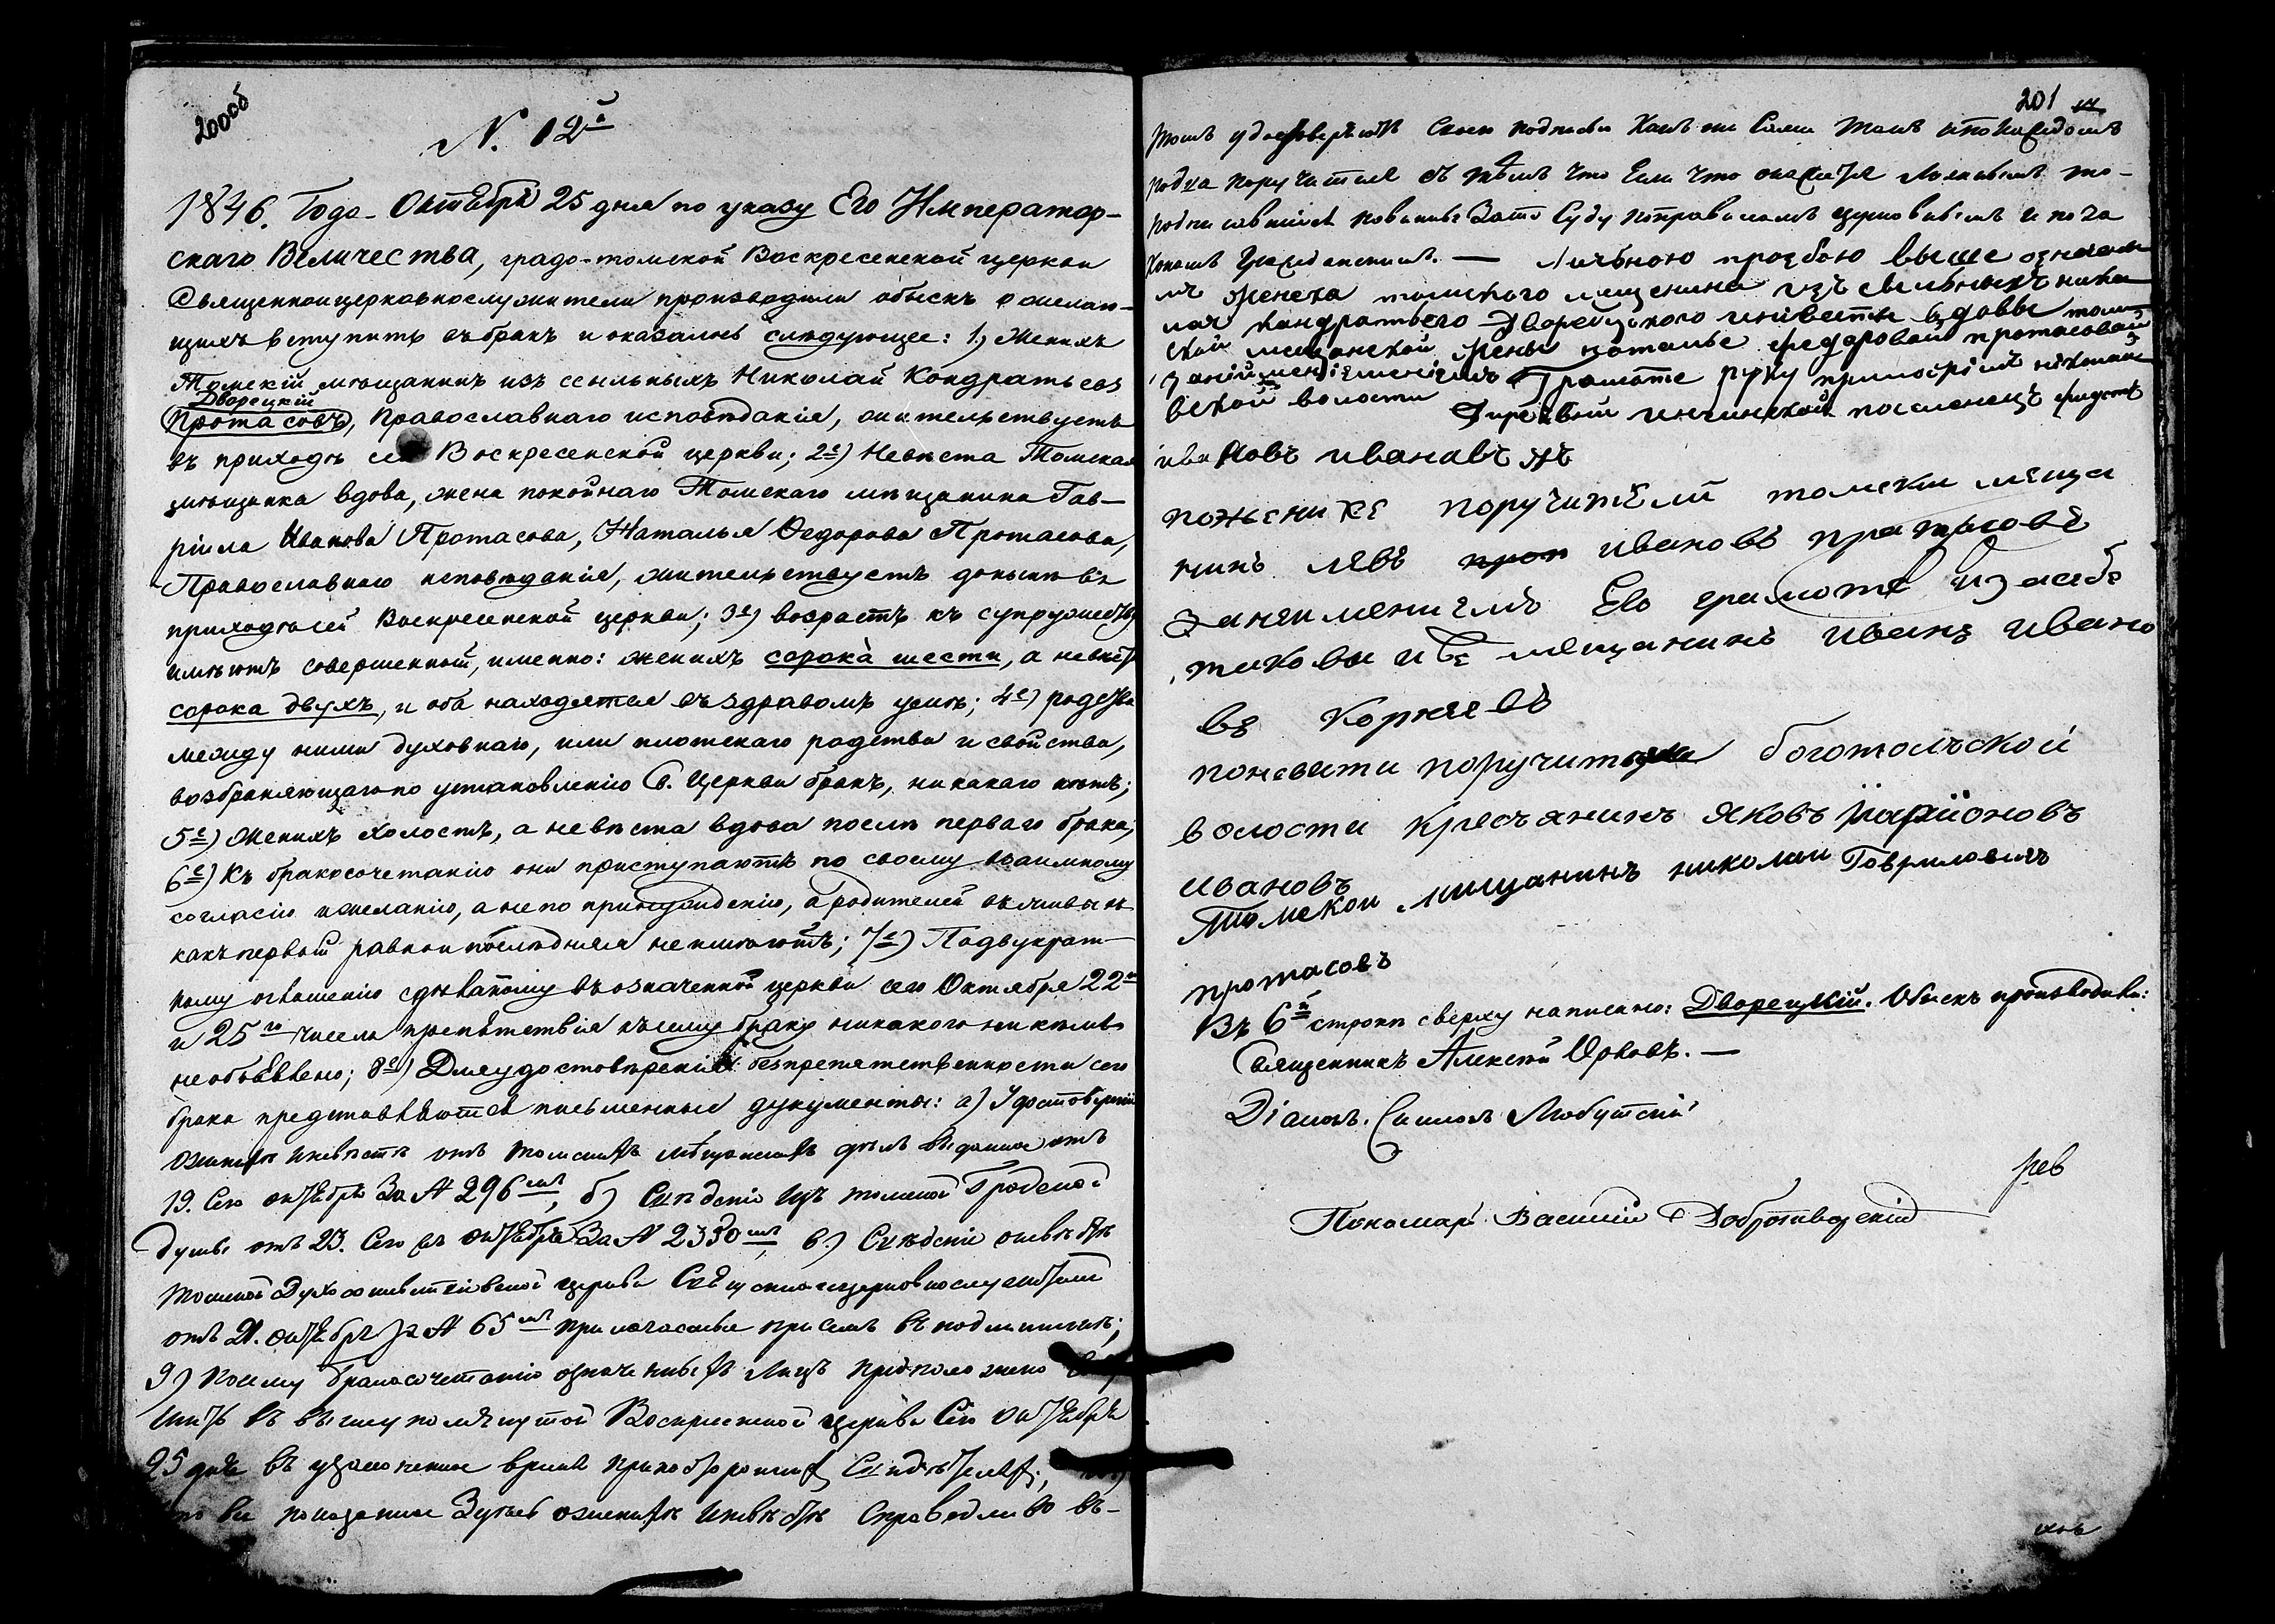 200об
N. 12й
1846. Года Октября 25 дня по указу Его Император-
скаго Величества, градо-томской Воскресенской церкви
Священноицерковнослужители производили обыскъ о желаю-
щихъ вступить въ бракъ и оказалось следующее: 1) Женихъ
Томскій мѣщанинъ изъ ссыльныхъ Николай Кондратьевъ
Дворецкій
Протасовъ, Православнаго исповѣданія, жительствуетъ
въ приходѣ сей Воскресенской церкви; 2е) Невѣста Томская
мѣщанка вдова, жена покойнаго Томскаго мѣщанина Гав-
ріила Иванова Протасова, Наталья Федорова Протасова,
Православнаго исповѣданія, жительствуетъ донынѣ въ
приходѣ сей Воскресенской церкви; 3е) возрастъ къ супружеству
имѣютъ совершенной, именно: женихъ сорока шести, а невѣста
сорока двухъ, и оба находятся въ здравомъ умѣ; 4е) родства
между ними духовнаго, или плотскаго родства и свойства,
возбраняющаго по установленію Св. Церкви бракъ, никакого нѣтъ;
5е) Женихъ холостъ, а невѣста вдова послѣ перваго брака;
6е) Къ бракосочетанію они приступаютъ по своему взаимному
согласію и желанію, а не по принужденію, а родителей въ живыхъ
какъ первый равно и послѣдняя не имѣютъ; 7е) По двукрат-
ному оглашенію сдѣланному въ означенной церкви сего Октября 22го
и 25го числа препятствія къ сему браку никакого никѣмъ
не объявлено; 8е) Для удостовѣренія безпрепятственности сего
брака представляются письменные документы: а) Удостовѣреніе
о женихѣ и невѣстѣ отъ томскихъ мѣщанскихъ дѣлъ выданное отъ
19. Сего октября За N 296мъ, б) Свѣденіе изъ томской Градской
думы отъ 23. Сего октября За N 2330мъ, в.) Свѣденіе о невѣстѣ
томской Духосошественской церкви Священноицерковнослужителей
отъ 21. октября за N 65мъ при семъ въ подлинникѣ;
9) По сему бракосочетанію означенныхъ лицъ предположено
въ вышеупомянутой Воскресенской церкви Сего октября
25 дня въ узаконенное время при постороннихъ Свидѣтеляхъ,
все показанное Здѣсь о женихѣ и невѣстѣ Справедливо въ-
201
томъ удостоверяютъ Своею подписью какъ они Сами такъ и по каждомъ
поручителе съ тѣмъ что Если что окажется ложнымъ то
подписавшіеся повинны За то Суду по правиламъ церковнымъ и по за
конамъ Гражданскимъ. — Личною прозбою выше означен
женеха томского мещенина изъ ссыльныхъ нико
лая кандратьева Дворецкого и невесты вдовы том
ской мещанской жены наталье федоровой протасовой
занеименіемъ Грамоте руку приложилъ
волости Деревни поселенецъ
ивановъ
пожениже поручители томски меща
нинъ левъ ивановъ
занеимениемъ Его грамоте и засебе
мещанинъ иванъ ивано
въ Корнеевъ
поневести поручители боготольской
волости кресчянинъ яковъ
ивановъ
томской мищанинъ николаи Гавриловичъ
протасовъ
Въ 6й строкѣ сверху написано: Дворецкій. Обыскъ производили:
Священникъ Алексѣй Орловъ. —
Діаконъ Любутскій
Пономарь Василій Добротворскій